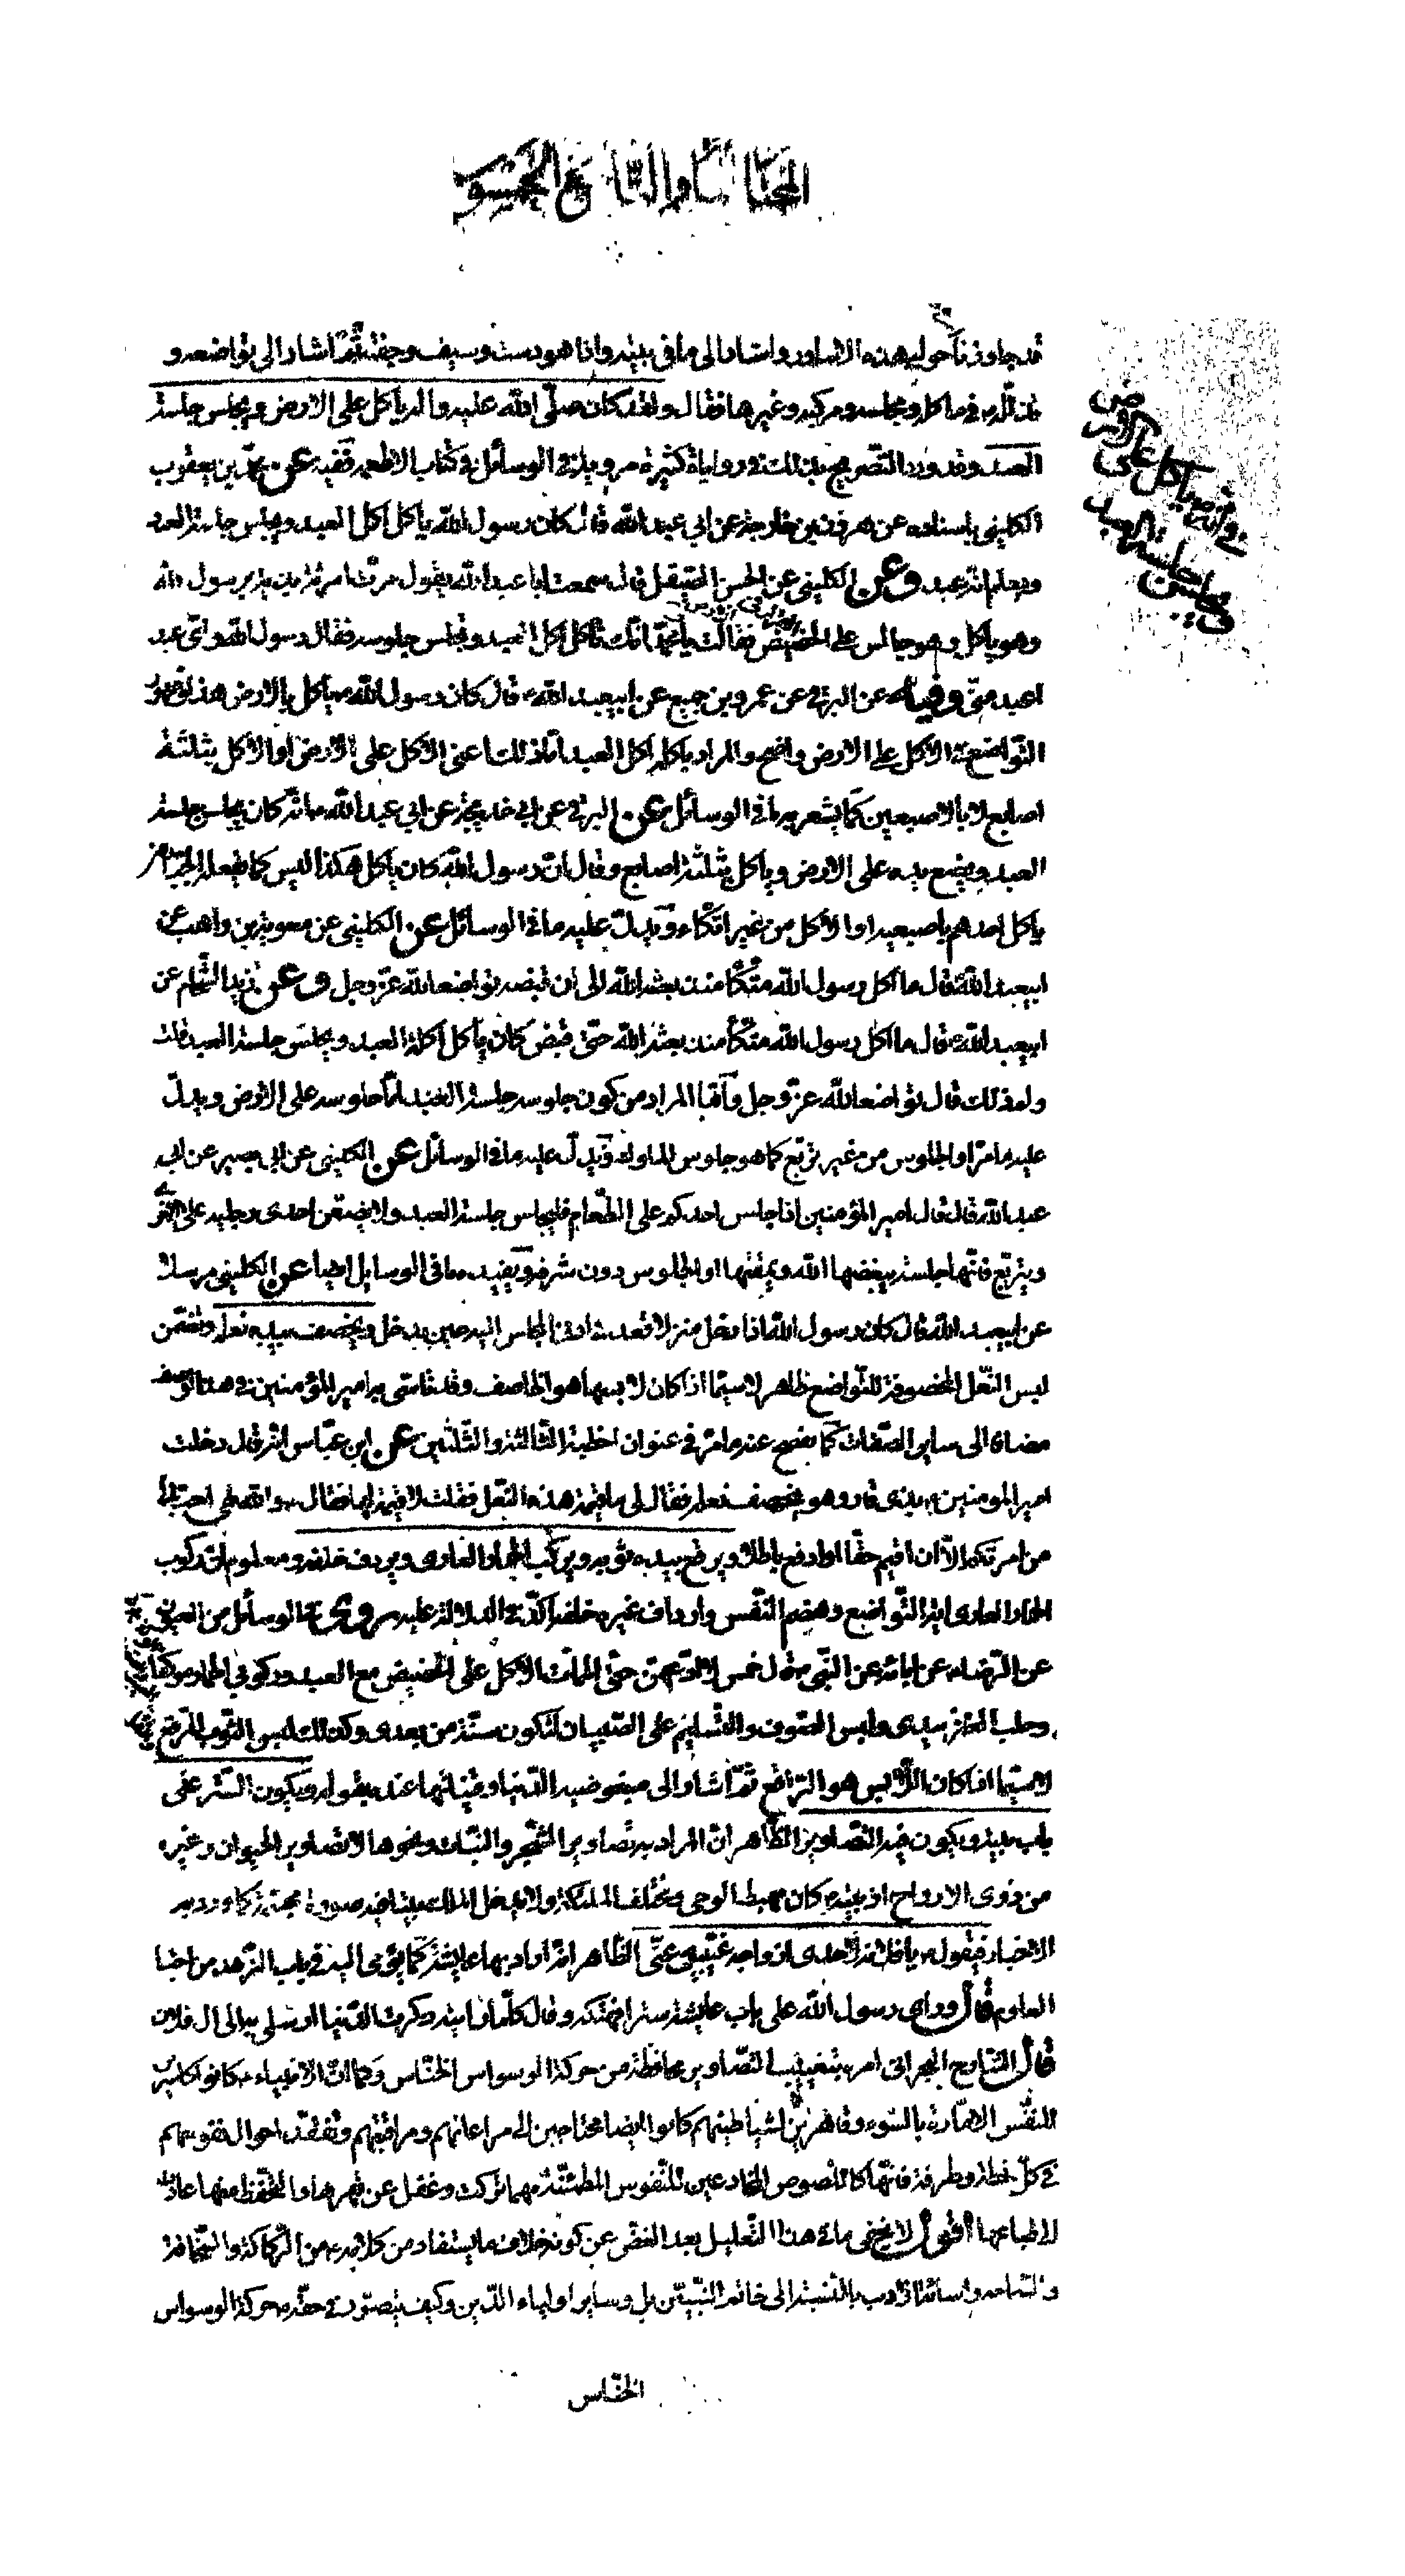 المختار المأة والتاسع والخمسون
قد جاوزناحوليهذه الاساور واشار الى ما في بيته واذا هو دست وسيف وجفنة ثم اشار الى تواضعه و
في مأكله ومجلسه ومركبه وغيرها فقال ولقد كان صلّى الله عليه واله يأكل على الارض ويجلس جلسة
العبد وقد ورد التصريح بذلك في روايات كثيرة مروية في الوسائل في كتاب الاطعمة ففيه عن محمّد بن يعقوب
الكليني باسناده عن هرون بن خارجة عن ابي عبد الله قال كان رسول الله يأكل اكل العبد ويجلس جلسة العبد
ويعلم انّه عبد وعن الكليني عن الحسن الصيقل قال سمعت ابا عبد الله يقول مرّت امرأة بذية برسول الله
وهو يأكل وهو جالس على الحضيض فقالت يا محمّد انّك تأكل اكل العبد وتجلس جلوسه فقال رسول الله واىّ عبد
اعبد منّي وفيه عن البرقي عن عمرو بن جميع عن ابيعبد الله قال كان رسول الله يأكل بالارض هذا وظهور
التّواضع في الاكل على الارض واضح والمراد بأكله اكل العبد امّا ذلك اعني الاكل على الارض او الاكل بثلثة
اصابع لا بالاصبعين كما يشعر به ما في الوسائل عن البرقي عن ابي خديجة عن ابي عبد الله انّه كان يجلس جلسة
العبد ويضع يده على الارض ويأكل بثلثة اصابع وقال انّ رسول الله كان يأكل هكذا ليس كما يفعله الجبّارون
يأكل احدهم باصبعيه او الاكل من غير اتّكاء ويدلّ عليه ما في الوسائل عن الكليني عن معوية بن وهب عن
ابيعبد الله قال ما اكل رسول الله متّكأ منذ بعثه الله الى ان قبضه تواضعا لله عزّ وجل وعن زيد الشّحام عن
ابيعبد الله قال ما اكل رسول الله متّكأ منذ بعثه الله حتّى قبض كان يأكل اكلة العبد ويجلس جلسة العبد قلت
ولم ذلك قال تواضعا لله عزّ وجل وامّا المراد من كون جلوسه جلسة العبد امّا جلوسه على الارض ويدلّ
عليه ما مرّ او الجلوس من غير تربّع كما هو جلوس الملوك ويدلّ عليه ما في الوسائل عن الكليني عن ابي بصير عن ابي
عبد الله قال قال امير المؤمنين اذا جلس احدكم على الطّعام فليجلس جلسة العبد ولا يضعنّ احدى رجليه على الاخرى
ويتربّع فانّها جلسة يبغضها الله ويمقتها او الجلوس دون شرفه ويفيده ما في الوسايل ايضا عن الكليني مرسلا
عن ابيعبد الله قال كان رسول الله اذا دخل منزلا قعد في ادنى المجلس اليه حين يدخل ويخصف بيده نعله وتضمّن
لبس النّعل المخصوفة للتّواضع ظاهر لا سيّما اذا كان لابسها هو الخاصف وقد تأسّى به امير المؤمنين في هذا الوصف
مضافا الى ساير الصّفات كما يفصح عنه ما مرّ في عنوان الخطبة الثّالثة والثّلثين عن ابن عبّاس انّه قال دخلت
امير المومنين بذي قار وهو يخصف نعله فقال لي ما قيمة هذه النّعل فقلت لا قيمة لها فقال والله لهي احبّ اليّ
من امرتكم الاّ ان اقيم حقّا او ادفع باطلا ويرقع بيده ثوبه ويركب الحمار العاري ويردف خلفه ومعلوم انّ ركوب
الحمار العاري اية التّواضع وهضم النّفس وارداف غيره خلفه اكد في الدلالة عليه روى في الوسائل من العيون
عن الرّضا عن ابائه عن النّبي قال خمس لا ادعهنّ حتّى الممات الاكل على الحضيض مع العبيد وركوبي الحمار موكفا
وحلب العنز بيدي ولبس الصّوف والتّسليم على الصّبيان لتكون سنّة من بعدي وكذلك لبس الثّوب المرقع
لا سيّما اذا كان اللاّبس هو الرّاقع ثمّ اشار الى مبغوضية الدّنيا وقيناتها عنده بقوله ويكون السّتر على
باب بيته ويكون فيه التّصاوير الظّاهر انّ المراد به تصاوير الشّجر والنّبات ونحوها لا تصاوير الحيوان وغيره
من ذوي الارواح اذ بيته كان مهبط الوحي ومختلف الملئكة ولا يدخل الملك بيتا فيه صورة مجسّمة كما ورد به
الاخبار فيقول يا فلانة لاحدى ازواجه غيّبيه عنّي الظّاهر انّه اراد بها عايشة كما يؤمى اليه في باب الزّهد من احيا
العلوم قال وراى رسول الله على باب عايشة سترا فهتكه وقال كلّما رأيته ذكرت الدّنيا ارسلى به الى ال فلان
قال الشّارح البحراني امره بتغييب التّصاوير محافظة من حركة الوسواس الخنّاس وكما انّ الانبياء كانوا كاسرين
للنّفس الامّارة بالسّوء وقاهرين لشياطينهم كانوا ايضا محتاجين الى مراعاتهم ومراقبتهم وتفقّد احوال نفوسهم
في كلّ لحظة وطرفة فانّها كاللّصوص المخادعين للنّفوس المطمئنّة مهما تركت وغفل عن قهرها والتّحفّظ منها عادت
الى طباعها اقول لا يخفى ما في هذا التّعليل بعد الغضّ عن كونه خلاف ما يستفاد من كلامه من الرّكاكة والسّخافة
والشّناعة واسائة الادب بالنّسبة الى خاتم النّبيّين بل وساير اولياء الدّين وكيف يتصوّر في حقّه حركة الوسواس
الخنّاس
في انّه يأكل على الارض
ويجلس جلسة العبد